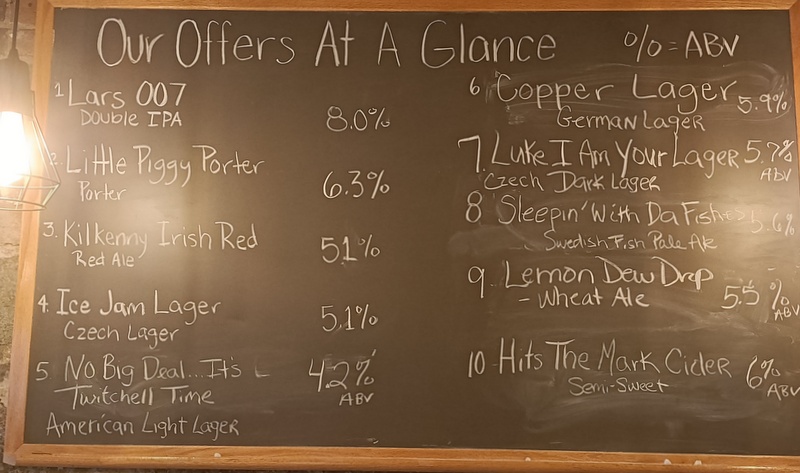 Our Offers At A Glance
%=ABV
1 Lars 007
Double IPA
8.0%
2. Little Piggy Porter
Porter
6.3%
3. Kilkenny Irish Red
Red Ale
51%
4. Ice Jam Lager
Czech Lager
5.1%
5 No Big Deal...It's
Twitchell Time
American Light Lager
4.2%
ABV
6 Copper Lager
German Lager
5.9%
7. Luke I Am Your Lager
Czech Dark Lager
5.7%
ABV
8 Sleepin' With Da Fishes
Swedish Fish Pale Ale
5.6%
9. Lemon Dew Drop
- Wheat Ale
5.5%
ABV
10 Hits The Mark Cider
Semi-Sweet
6%
ABV